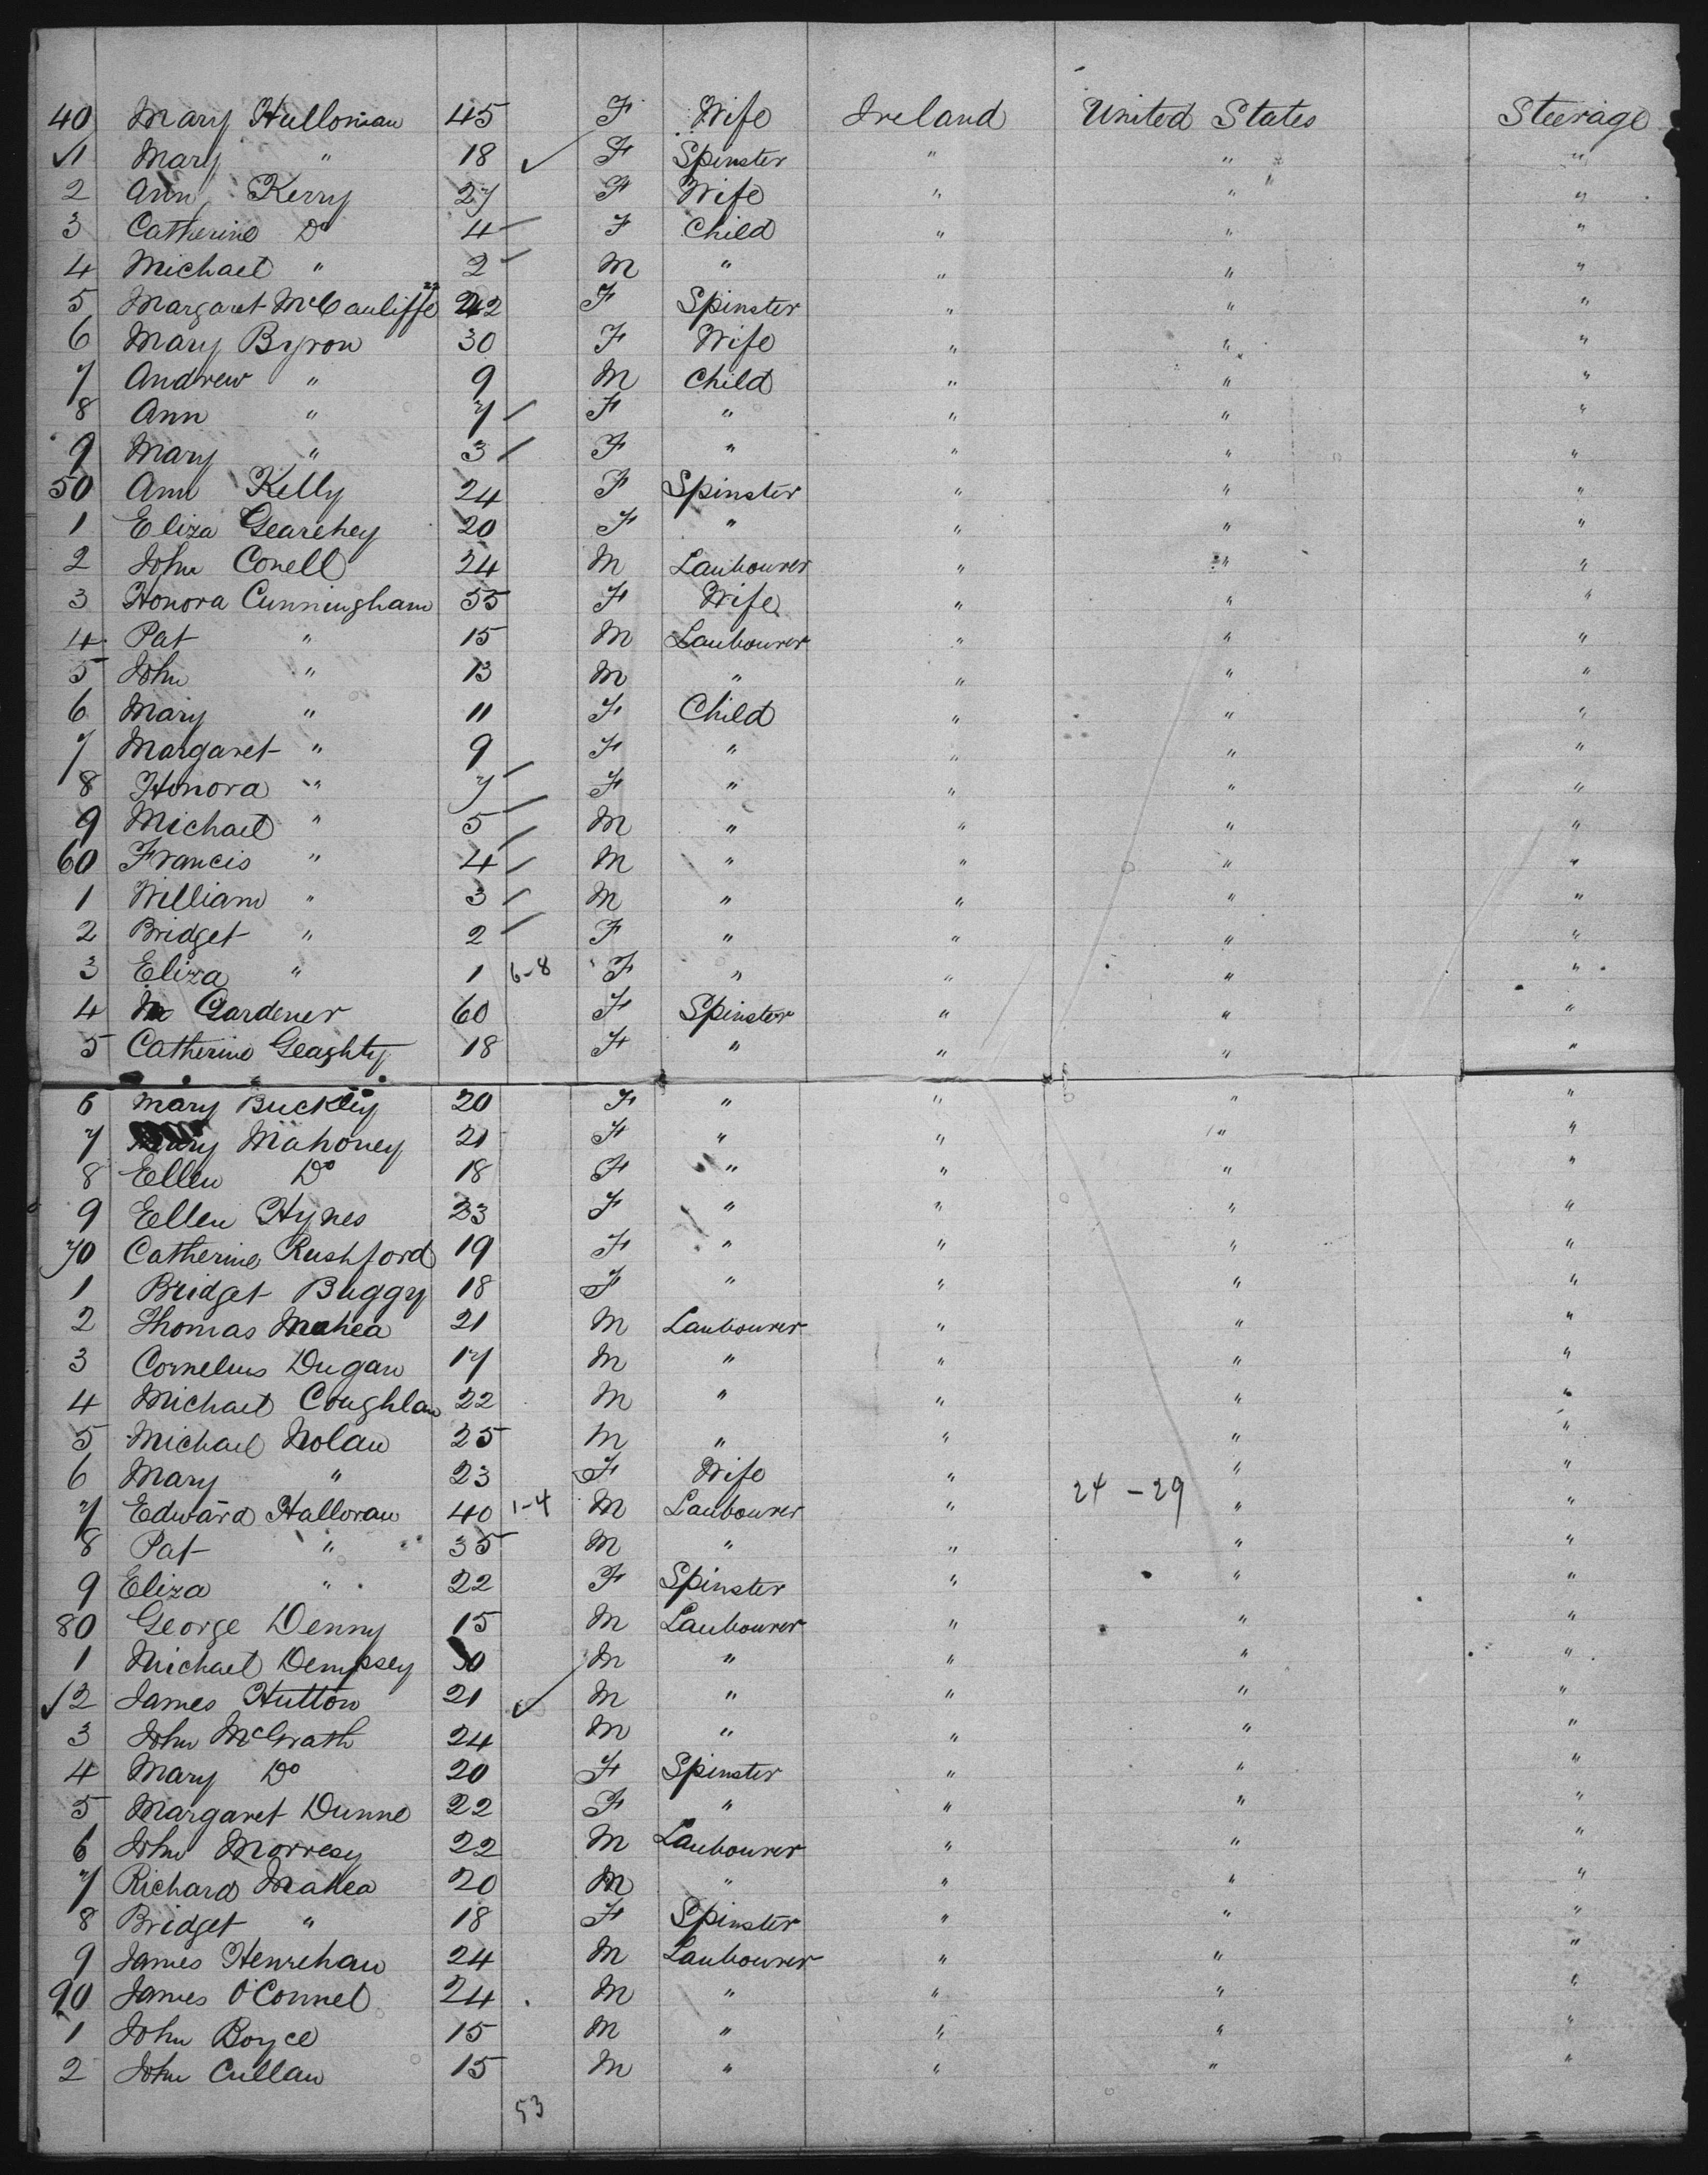 40 Mary Hullonian 45 F Wife Ireland United States Steerage
✓1 Mary " 18 ✓ F Spinster " " "
2 Ann Kerry 27 F Wife " " "
3 Catherine Do 4 F Child " " "
4 Michael " 2 M " " " "
5 Margaret McCauliffe 22 F Spinster " " "
6 Mary Byron 30 F Wife " " "
7 Andrew " 9 M Child " " "
8 Ann " 7 F " " " "
9 Mary " 3 F " " " "
50 Ann Kelly 24 F Spinster " " "
1 Eliza Gearehey 20 F " " " "
2 John Conell 24 M Laubourer " " "
3 Honora Cunningham 55 F Wife " " "
4 Pat " 15 M Laubourer " " "
5 John " 13 M " " " "
6 Mary " 11 F Child " " "
7 Margaret " 9 F " " " "
8 Honora " 7 F " " " "
9 Michael " 5 M " " " "
60 Francis " 4 M " " " "
1 William " 3 M " " " "
2 Bridget " 2 F " " " "
3 Eliza " 1 6-8 F " " " "
4 Gardener 60 F Spinster " " "
5 Catherine Geaghty 18 F " " " "
6 Mary Buckley 20 F " " " "
7 Mary Mahoney 21 F " " " "
8 Ellen Do 18 F " " " "
9 Ellen Hynes 23 F " " " "
70 Catherine Rushford 19 F " " " "
1 Bridget Buggy 18 F " " " "
2 Thomas Mahea 21 M Laubourer " " "
3 Cornelius Dugan 17 M " " " "
4 Michael Coughlan 22 M " " " "
5 Michael Nolan 25 M " " " "
6 Mary " 23 F Wife " " "
7 Edward Halloran 40 1-4 M Laubourer " 24-29 " "
8 Pat " 35 M " " " "
9 Eliza " 22 F Spinster " " "
80 George Denny 15 M Laubourer " " "
1 Michael Dempsey 30 M " " " "
✓2 James Hutton 21 ✓ M " " " "
3 John McGrath 24 M " " " "
4 Mary Do 20 F Spinster " " "
5 Margaret Dunne 22 F " " " "
6 John Morresy 22 M Laubourer " " "
7 Richard Mahea 20 M " " " "
8 Bridget " 18 F Spinster " " "
9 James Henrehan 24 M Laubourer " " "
90 James O'Connel 24 M " " " "
1 John Boyce 15 M " " " "
2 John Cullan 15 M " " " "
53